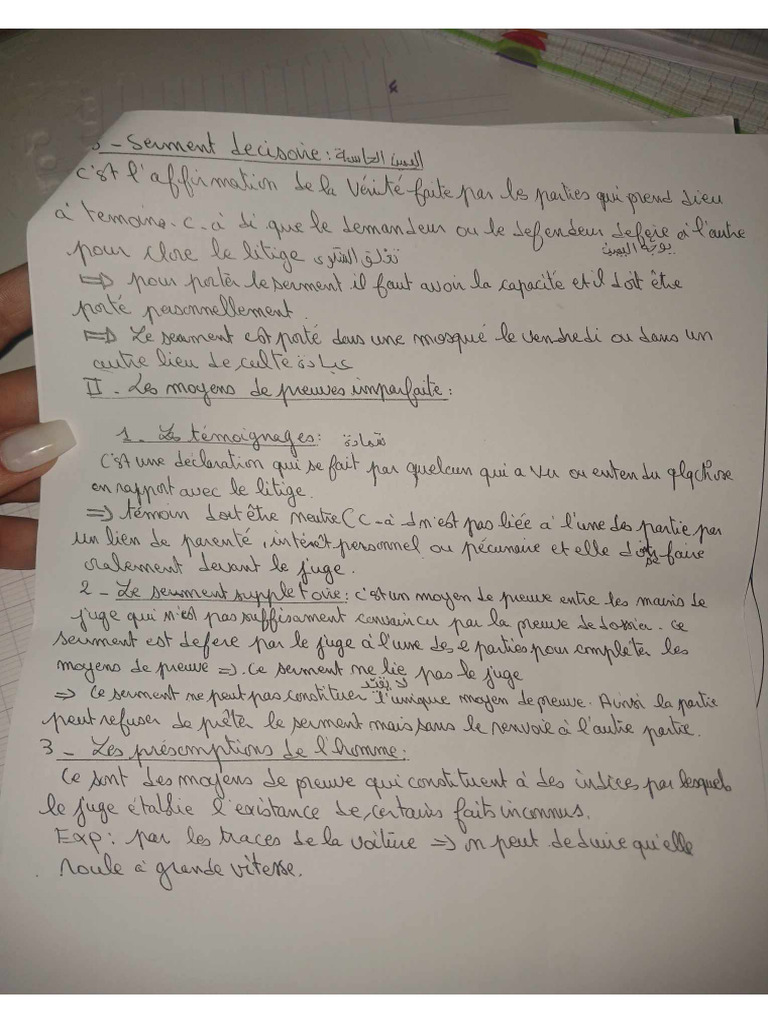 - Serment decisoire: اليمين الحاسمة
C'est l'affirmation de la Vérité faite par les parties qui prend dieu
à temoins. c. à di que le demandeur ou le defendeur defère à l'autre
يوجه اليمين
pour clore le litige
⇒ pour porter le serment il faut avoir la capacité et il doit être
porté personnellement.
⇒ Le serment est porté dans une mosqué le vendredi ou dans un
autre lieu de culte عبادة
II - Les moyens de preuves imparfaite:
1 - Les témoignages: شهادة
C'est une déclaration qui se fait par quelcun qui a vu ou entendu qlqchose
en rapport avec le litige.
⇒ témoin doit être neutre (c-à d n'est pas liée à l'une des partie par
un lien de parenté, intérêt personnel ou pécunaire et elle doit se faire
oralement devant le juge.
2 - Le serment suppletoire: c'est un moyen de preuve entre les mains de
juge qui n'est pas suffisament convaincu par la preuve de dossier. ce
serment est defere par le juge à l'une des 2 parties pour complèter les
moyens de preuve ⇒ Ce serment ne lie pas le juge
لا يقيد
⇒ Ce serment ne peut pas constituer l'unique moyen de preuve. Ainsi la partie
peut refuser de prêter le serment mais sans le renvoie à l'autre partie.
3 - Les présomptions de l'homme:
Ce sont des moyens de preuve qui constituent à des indices par lesquels
le juge établie l'existance de certains faits inconnus.
Exp: par les traces de la voiture ⇒ on peut deduire qu'elle
roule à grande vitesse.